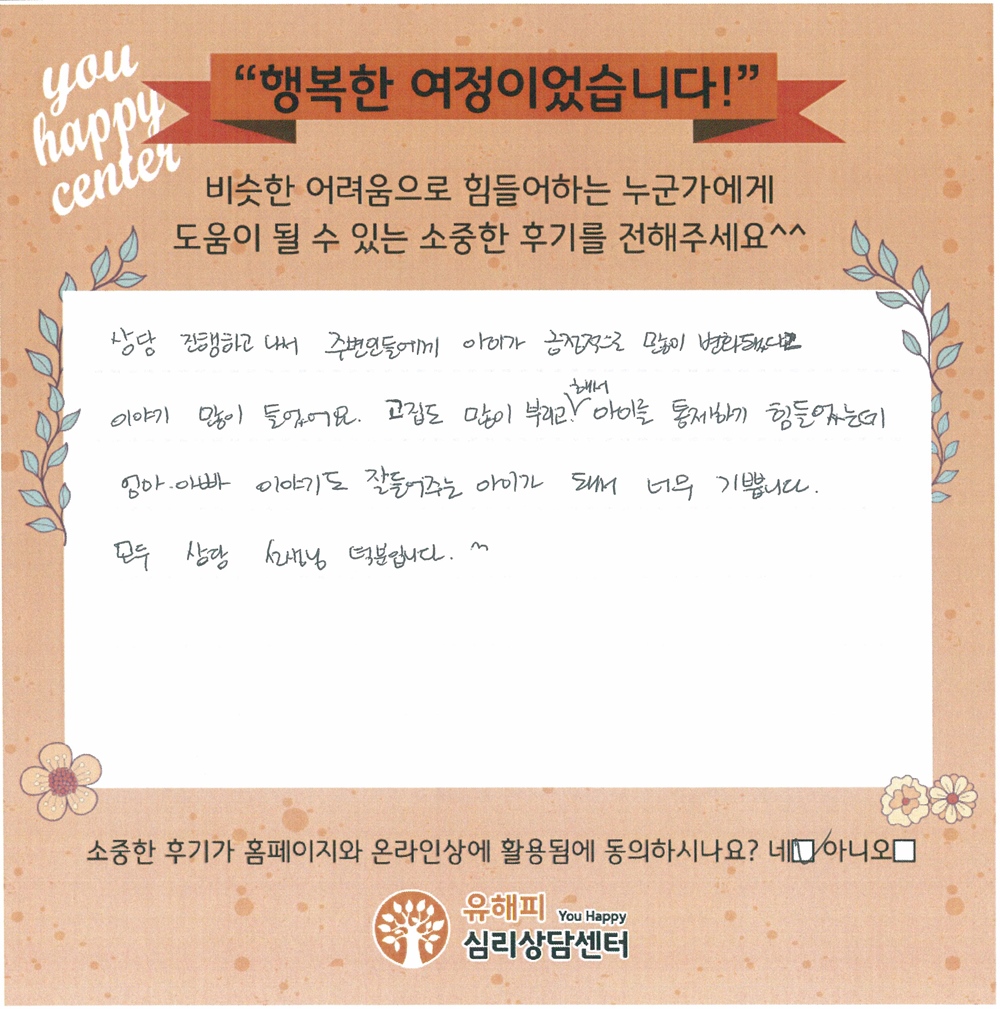 you
happy
center
“행복한 여정이었습니다!”
비슷한 어려움으로 힘들어하는 누군가에게
도움이 될 수 있는 소중한 후기를 전해주세요^^
상담 진행하고 나서 주변인들에게 아이가 긍정적으로 많이 변화됐다고
이야기 많이 들었어요. 고집도 많이 부리고 해서 아이를 통제하기 힘들었는데
엄마.아빠 이야기도 잘들어주는 아이가 돼서 너무 기쁩니다.
모두 상담 선생님 덕분입니다. ^^
소중한 후기가 홈페이지와 온라인상에 활용됨에 동의하시나요? 네 아니오
유해피 You Happy
심리상담센터